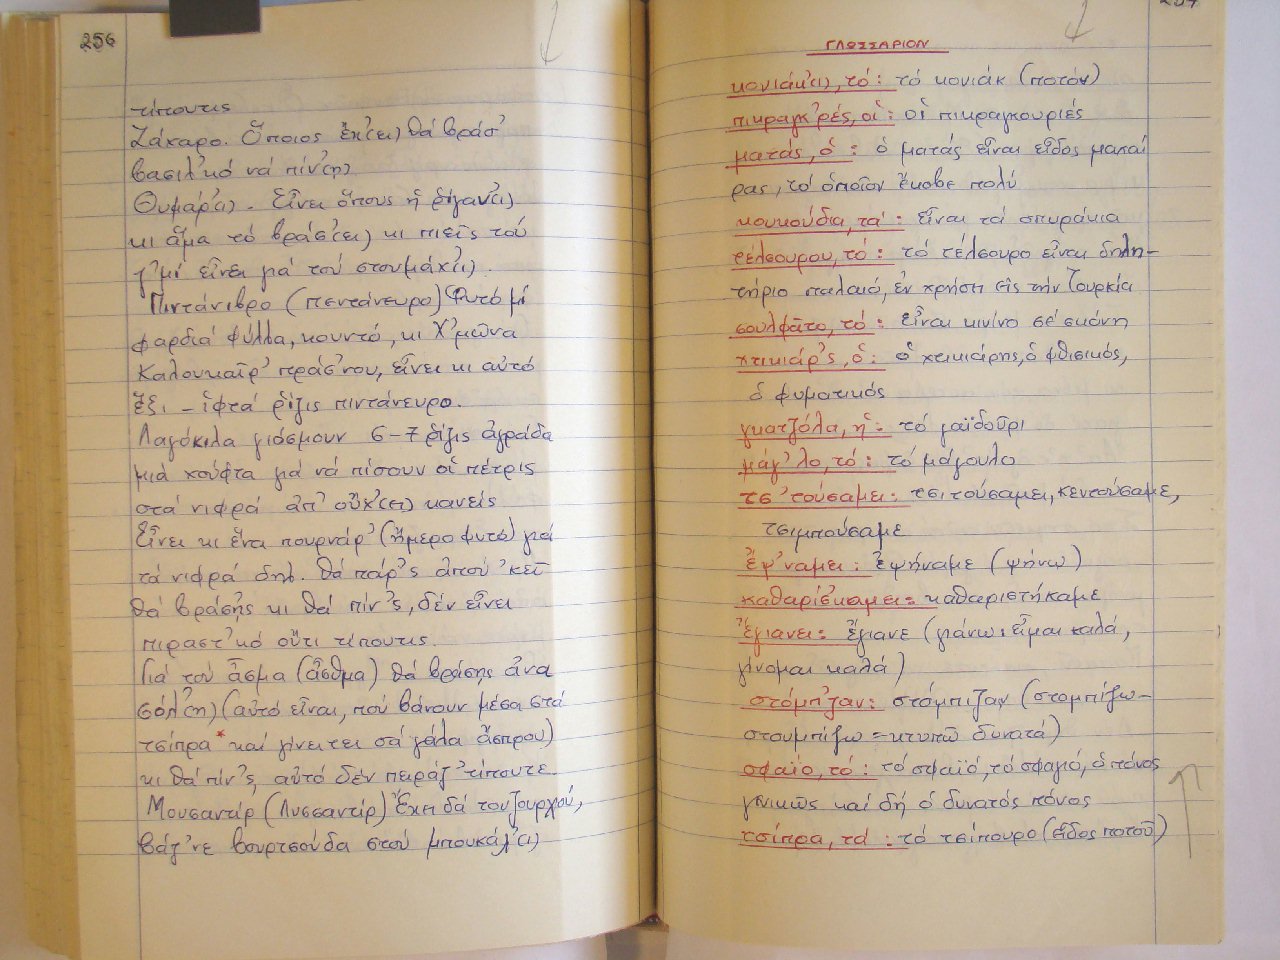 256
τίπουτις
Ζάχαρο. Ὅποιος ἔχ'(ει) θά βράσ'
βασιλ'κό νά πίν'(η)
Θυμάρ'(ι). Εἶνει ὅπους ἡ ρίγαν'(ι)
κι ἅμα τό βράσ'(ει) κι πιεῖς τού
ζ'μί εἶνει γιά τού στουμάχ'(ι).
Πιντάνιβρο (πεντάνευρο) Φυτό μί
φαρδιά φύλλα, κουντό, κι Χ'μῶνα
Καλουκαῖρ' πράσ'νου, εἶνει κι αὐτό
ἕξι - ἱφτά ρίζις πιντάνευρο.
Λαγόκιλα γιόσμουν 6-7 ρίζις ἀγράδα
μιά χούφτα γιά νά πίσουν οἱ πέτρις
στά νιφρά ἀπ' οὔχ'(ει) κανείς
Εἶνει κι ἕνα πουρνάρ' (ἥμερο φυτό) γιά
τά νιφρά δηλ. θά πάρ'ς ἀπού 'κεῖ
θά βράσῃς κι θά πίν'ς, δέν εἶνει
πιραστ'κό οὔτι τίπουτις.
Γιά τού ἄσμα (ἆσθμα) θά βράσῃς ἀνα
σόλ'(η) (αὐτό εἶναι, πού βάνουν μέσα στά
τσίπρα* καί γίνειτει σά γάλα ἄσπρου)
κι θά πίν'ς, αὐτό δέν πειράζ' τίπουτε.
Μουσαντήρ (Λυσσαντήρ) Ἔχει δά του Ζουρχού,
βάζ'νε βουρτσούδα στού μπουκάλ'(ι)
257
ΓΛΩΣΣΑΡΙΟΝ
κονιάκ'(ι), τό: τό κονιάκ (ποτόν)
πικραγκ'ρές, οἱ: οἱ πικραγκουριές
ματάς, ὁ: ὁ ματάς εἶναι εἶδος μαχαί
ρας, τό ὁποῖον ἔκοβε πολύ
κουκούδια, τά: εἶναι τά σπυράκια
τέλσουρου, τό: τό τέλσουρο εἶναι δηλη-
τήριο παλαιό, ἐν χρήσει εἰς τήν Τουρκία
σουλφᾶτο, τό: Εἶναι κινίνο σέ σκόνη
χτικιάρ'ς, ὁ: ὁ χτικιάρης, ὁ φθισικός,
ὁ φυματικός
γκατζόλα, ἡ: τό γαϊδοῦρι
μάγ'λο, τό: τό μάγουλο
τσ'τούσαμει: τσιτούσαμει, κεντούσαμε,
τσιμπούσαμε
ἔψ'ναμει: ἐψήναμε (ψήνω)
καθαρίσ'καμει: καθαριστήκαμε
Ἔγιανει: ἔγιανε (γιάνω: εἶμαι καλά,
γίνομαι καλά)
στόμπ'ζαν: στόμπιζαν (στομπίζω-
στουμπίζω = κτυπῶ δυνατά)
σφαϊό, τό: τό σφαϊό, τό σφαγιό, ὁ πόνος
γενικῶς καί δή ὁ δυνατός πόνος
τσίπρα, τά: τό τσίπουρο (εἶδος ποτοῦ)